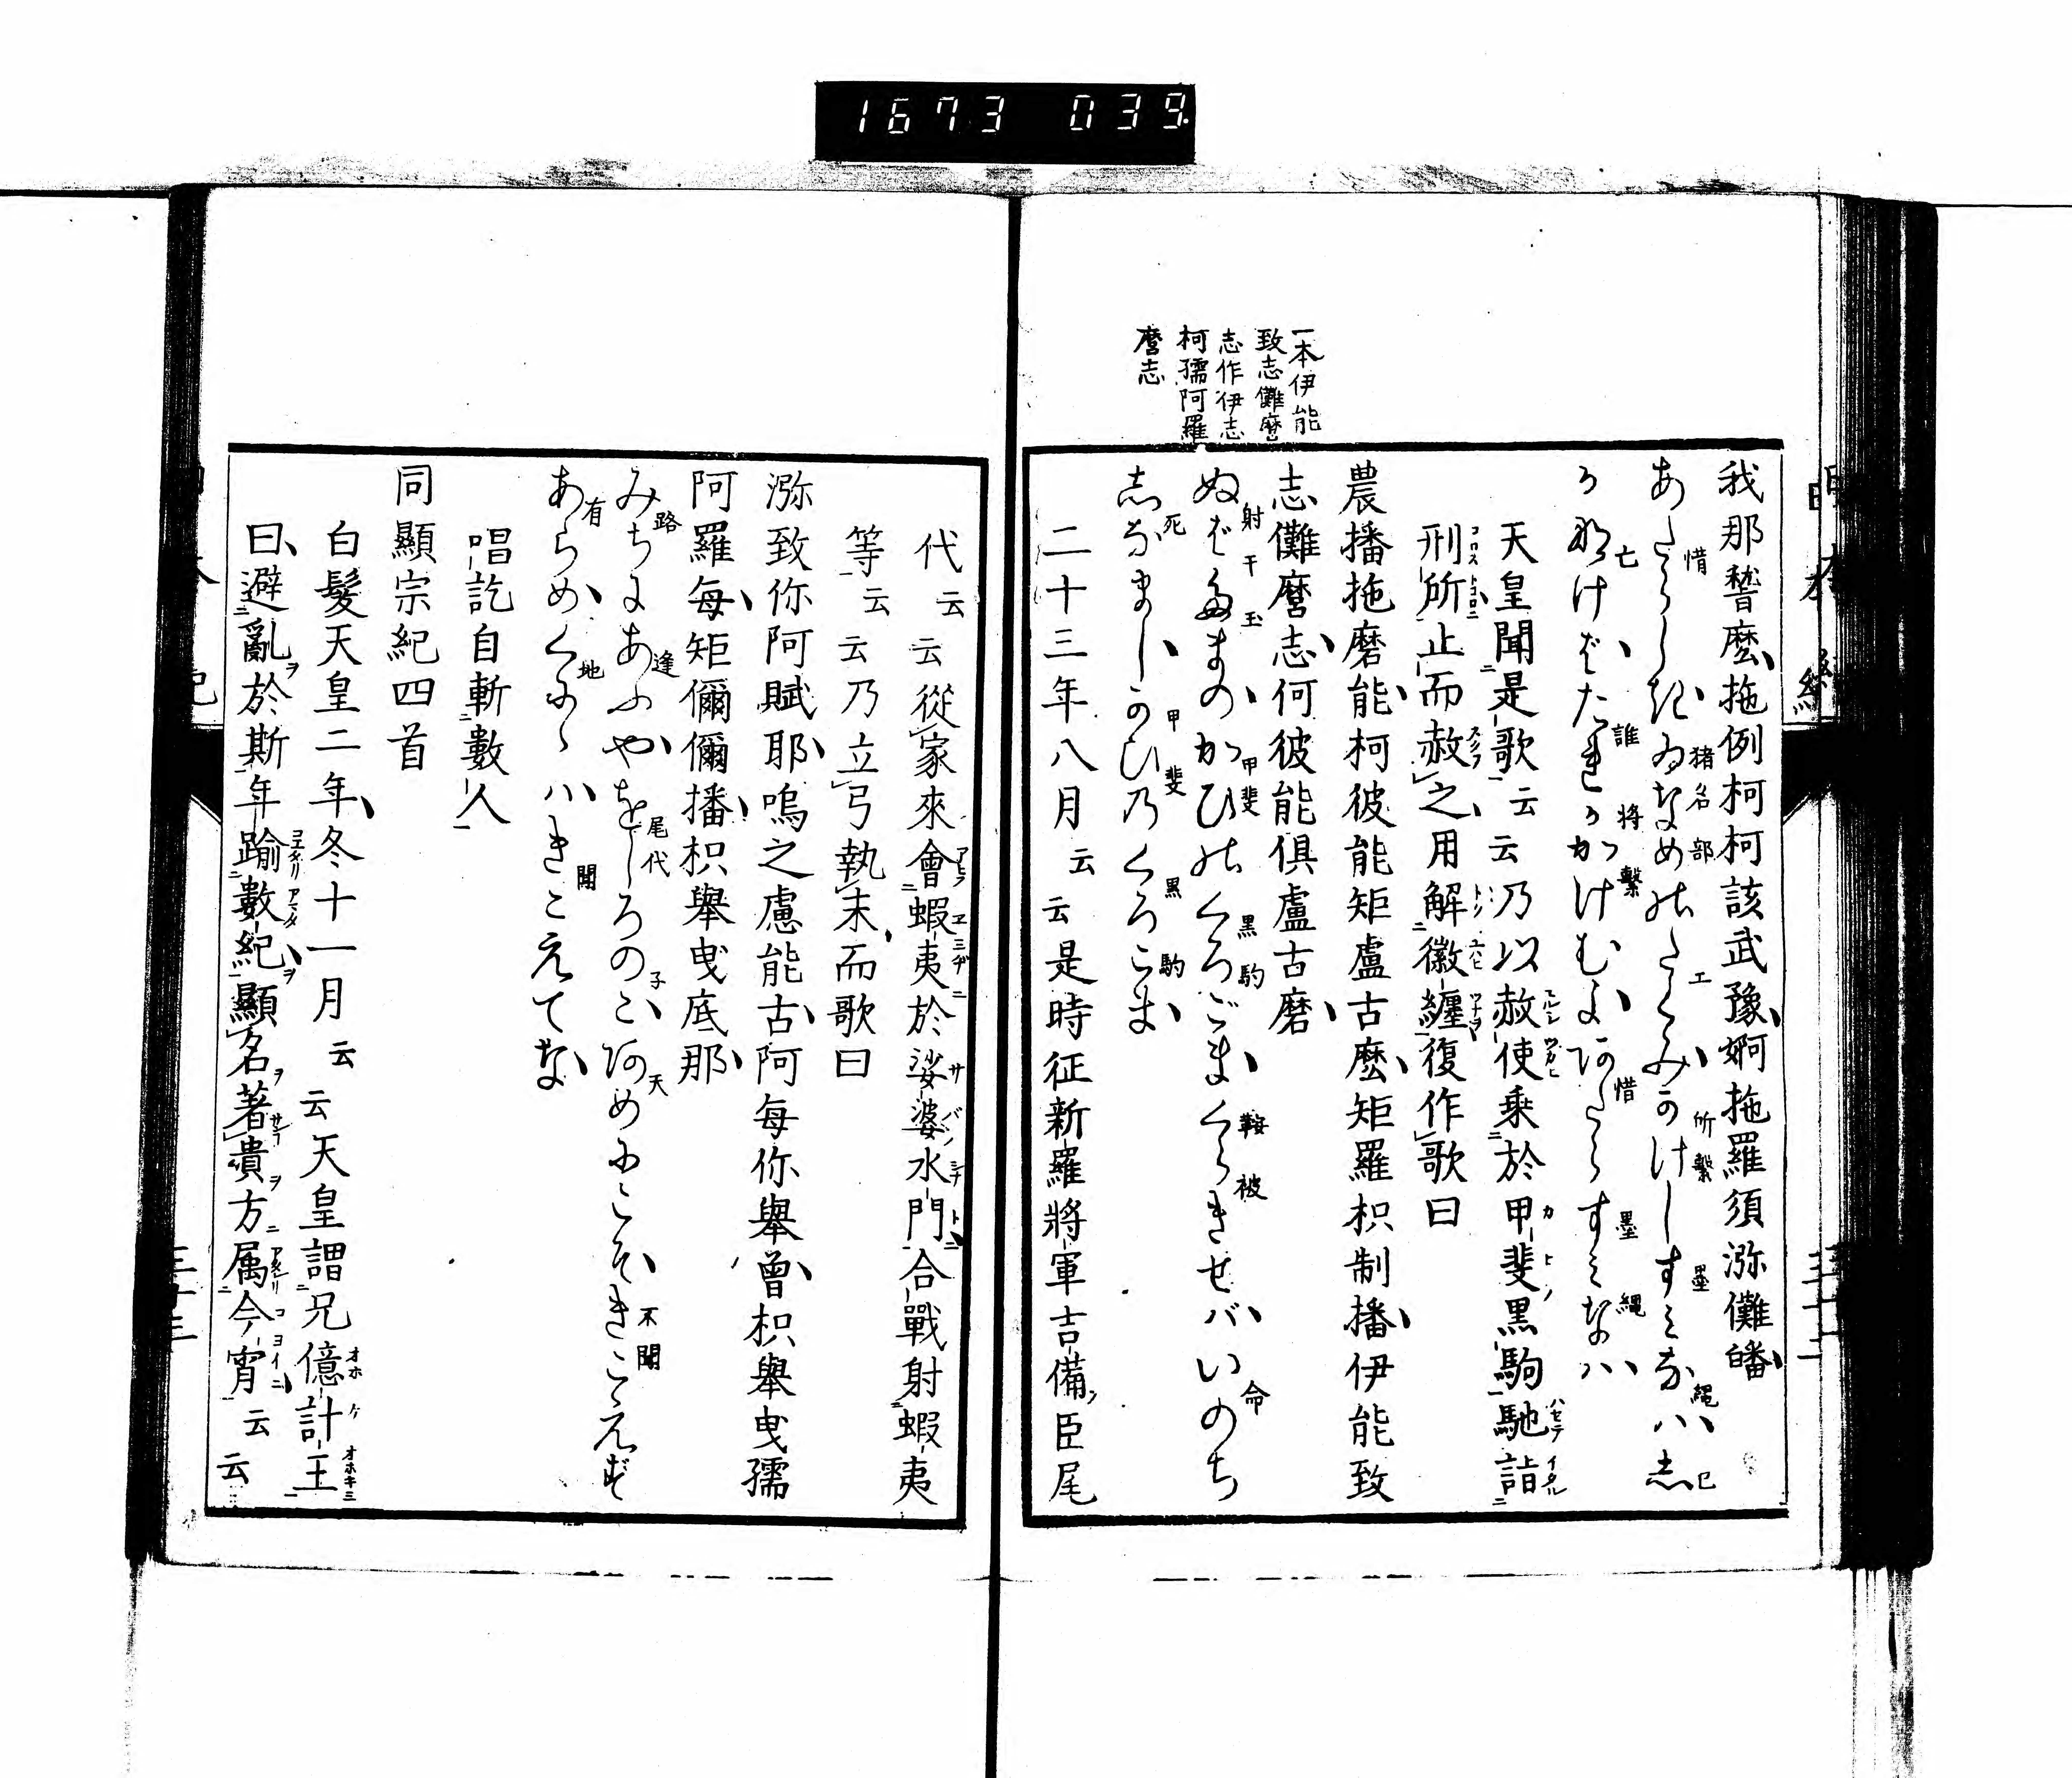 1673 039
一本伊能
致志儺麿
志作伊志
柯孺阿羅
麿志
我那謷麼拖例柯柯該武豫婀拖羅須瀰儺皤
あたらしきゐなめのたくみかけしすみなハし
かなけバたれかかけむよあたらすみなハ
天皇聞是歌云云乃以赦使乗於甲斐黒駒馳詣
刑所止而赦之用解徽纏復作歌曰
農播拖磨能柯彼能矩盧古麼矩羅枳制播伊能致
志儺麿志柯彼能倶盧古磨
ぬばたまのかひのくろごまくらきせバいのち
しなましかひのくろこま
二十三年八月云云是時征新羅將軍吉備臣尾
代云云從家來會蝦夷於娑婆水門合戰射蝦夷
等云云乃立弓執末而歌曰
瀰致你阿賦耶嗚之慮能古阿毎你舉曾枳舉曳孺
阿羅毎矩儞儞播枳舉曳底那
みちにあふやをしろのこあめにこそきこえず
あらめくにゝハきこえてな
唱訖自斬數人
同顯宗紀四首
白髮天皇二年冬十一月云云天皇謂兄億計王
曰避亂於斯年踰數紀顯名著貴方属今宵云云